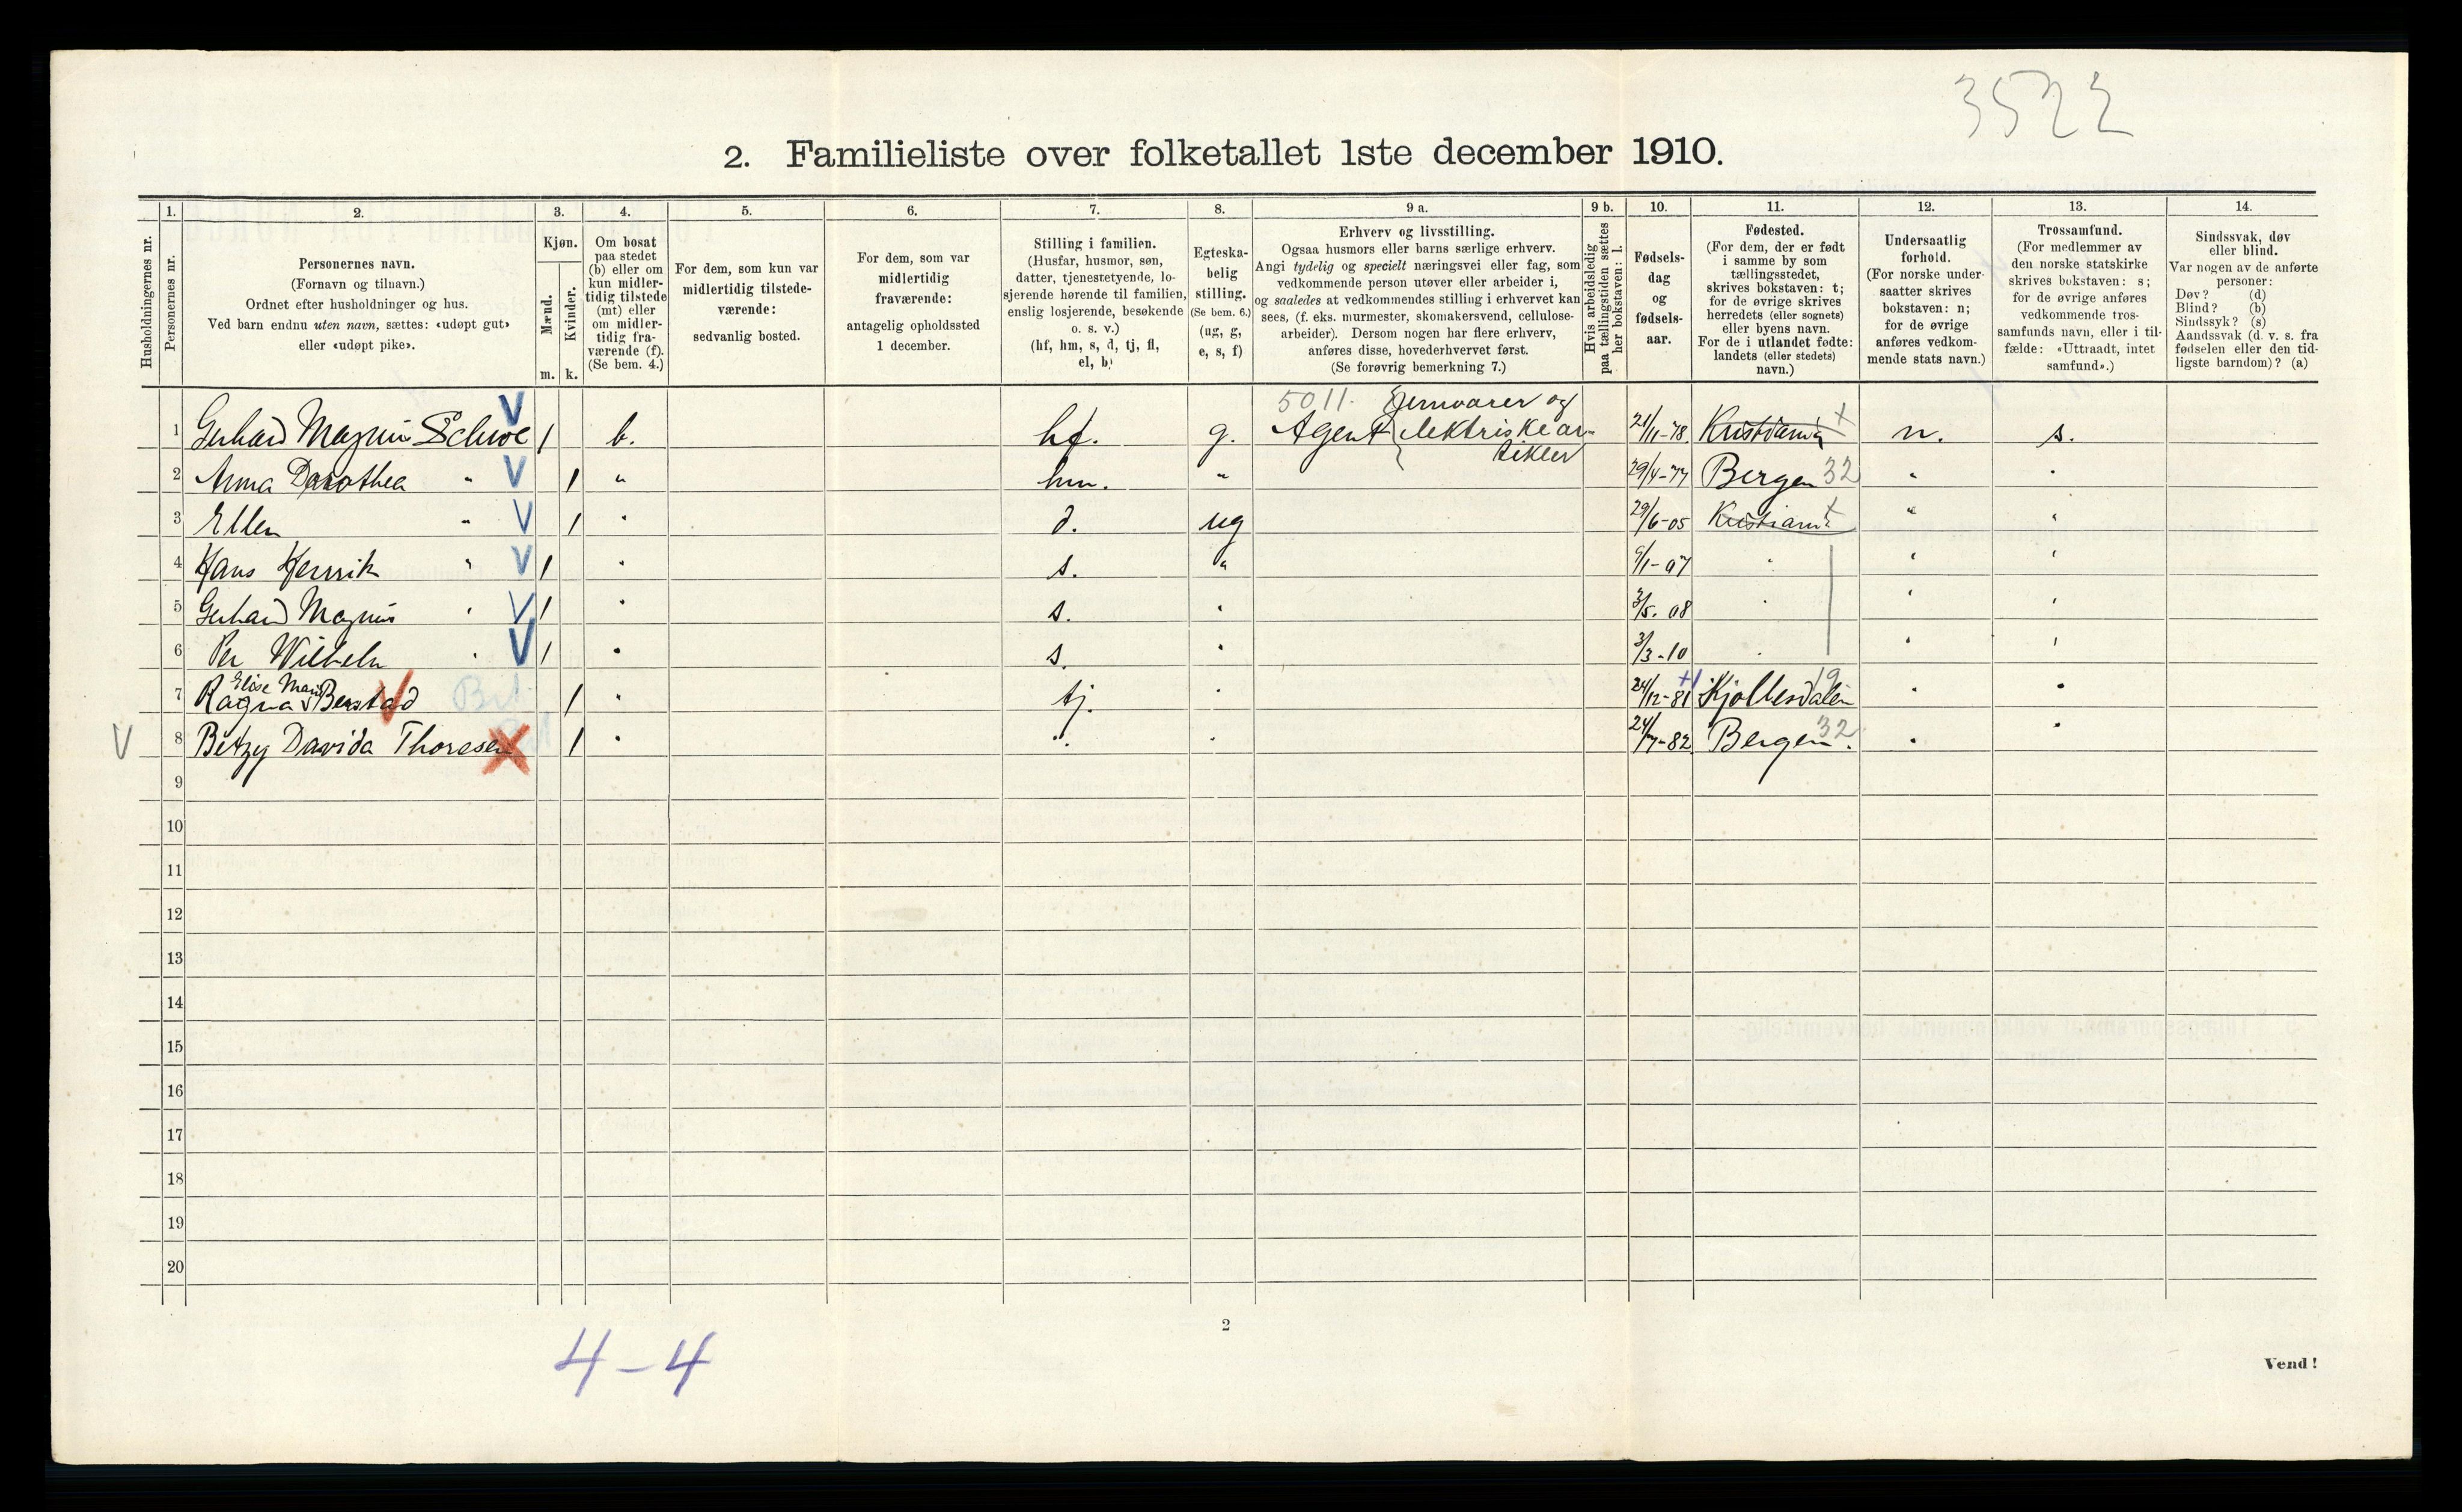 3522
2. Familieliste over folketallet 1ste december 1910.
Husholdningernes nr.
1.
Personernes nr.
2.
Personernes navn.
(Fornavn og tilnavn.)
Ordnet efter husholdninger og hus.
Ved barn endnu uten navn, sættes: «udøpt gut»
eller «udøpt pike».
3.
Kjøn.
Mænd.
Kvinder.
m. k.
4.
Om bosat
paa stedet
(b) eller om
kun midler-
tidig tilstede
(mt) eller
om midler-
tidig fra-
værende (f).
(Se bem. 4.)
5.
For dem, som kun var
midlertidig tilstede-
værende:
sedvanlig bosted.
6.
For dem, som var
midlertidig
fraværende:
antagelig opholdssted
1 december.
7.
Stilling i familien.
(Husfar, husmor, søn,
datter, tjenestetyende, lo-
sjerende hørende til familien,
enslig losjerende, besøkende
o. s. v.)
(hf, hm, s, d, tj, fl,
el, b)
8.
Egteska-
belig
stilling.
(Se bem. 6.)
(ug, g,
e, s, f)
9 a.
Erhverv og livsstilling.
Ogsaa husmors eller barns særlige erhverv.
Angi tydelig og specielt næringsvei eller fag, som
vedkommende person utøver eller arbeider i,
og saaledes at vedkommendes stilling i erhvervet kan
sees, (f. eks. murmester, skomakersvend, cellulose-
arbeider). Dersom nogen har flere erhverv,
anføres disse, hovederhvervet først.
(Se forøvrig bemerkning 7.)
9 b.
Hvis arbeidsledig
paa tællingstiden sættes
her bokstaven: l.
10.
Fødsels-
dag
og
fødsels-
aar.
11.
Fødested.
(For dem, der er født
i samme by som
tællingsstedet,
skrives bokstaven: t;
for de øvrige skrives
herredets (eller sognets)
eller byens navn.
For de i utlandet fødte:
landets (eller stedets)
navn.)
12.
Undersaatlig
forhold.
(For norske under-
saatter skrives
bokstaven: n;
for de øvrige
anføres vedkom-
mende stats navn.)
13.
Trossamfund.
(For medlemmer av
den norske statskirke
skrives bokstaven: s;
for de øvrige anføres
vedkommende tros-
samfunds navn, eller i til-
fælde: «Uttraadt, intet
samfund».)
14.
Sindssvak, døv
eller blind.
Var nogen av de anførte
personer:
Døv? (d)
Blind? (b)
Sindssyk? (s)
Aandssvak (d. v. s. fra
fødselen eller den tid-
ligste barndom)? (a)
5011. Jernvarer og
1 Gerhard Magnus Schwe V 1 b. hf. g. Agent elektriske ar- 21/11-78. Kristiania + n. s.
tikler
2 Anna Dorothea " V 1 " hm. " 29/4-77 Bergen 32 " "
3 Ellen " V 1 " d. ug 29/6-05 Kristiania + " "
4 Hans Henrik " V 1 " s. " 9/1-07 " " "
5 Gerhard Magnus " V 1 " s. " 3/5-08 " " "
6 Per Wilhelm " V 1 " s. " 3/3-10 " " "
Elise Marie 19
7 Ragna Berstad V 1 " tj. " 24/12-81 Kjøllesdalen " "
V 8 Betzy Davida Thoresen X 1 " " " 24/7-82 Bergen. 32 " "
9
10
11
12
13
14
15
16
17
18
19
20
2
4-4
Vend!